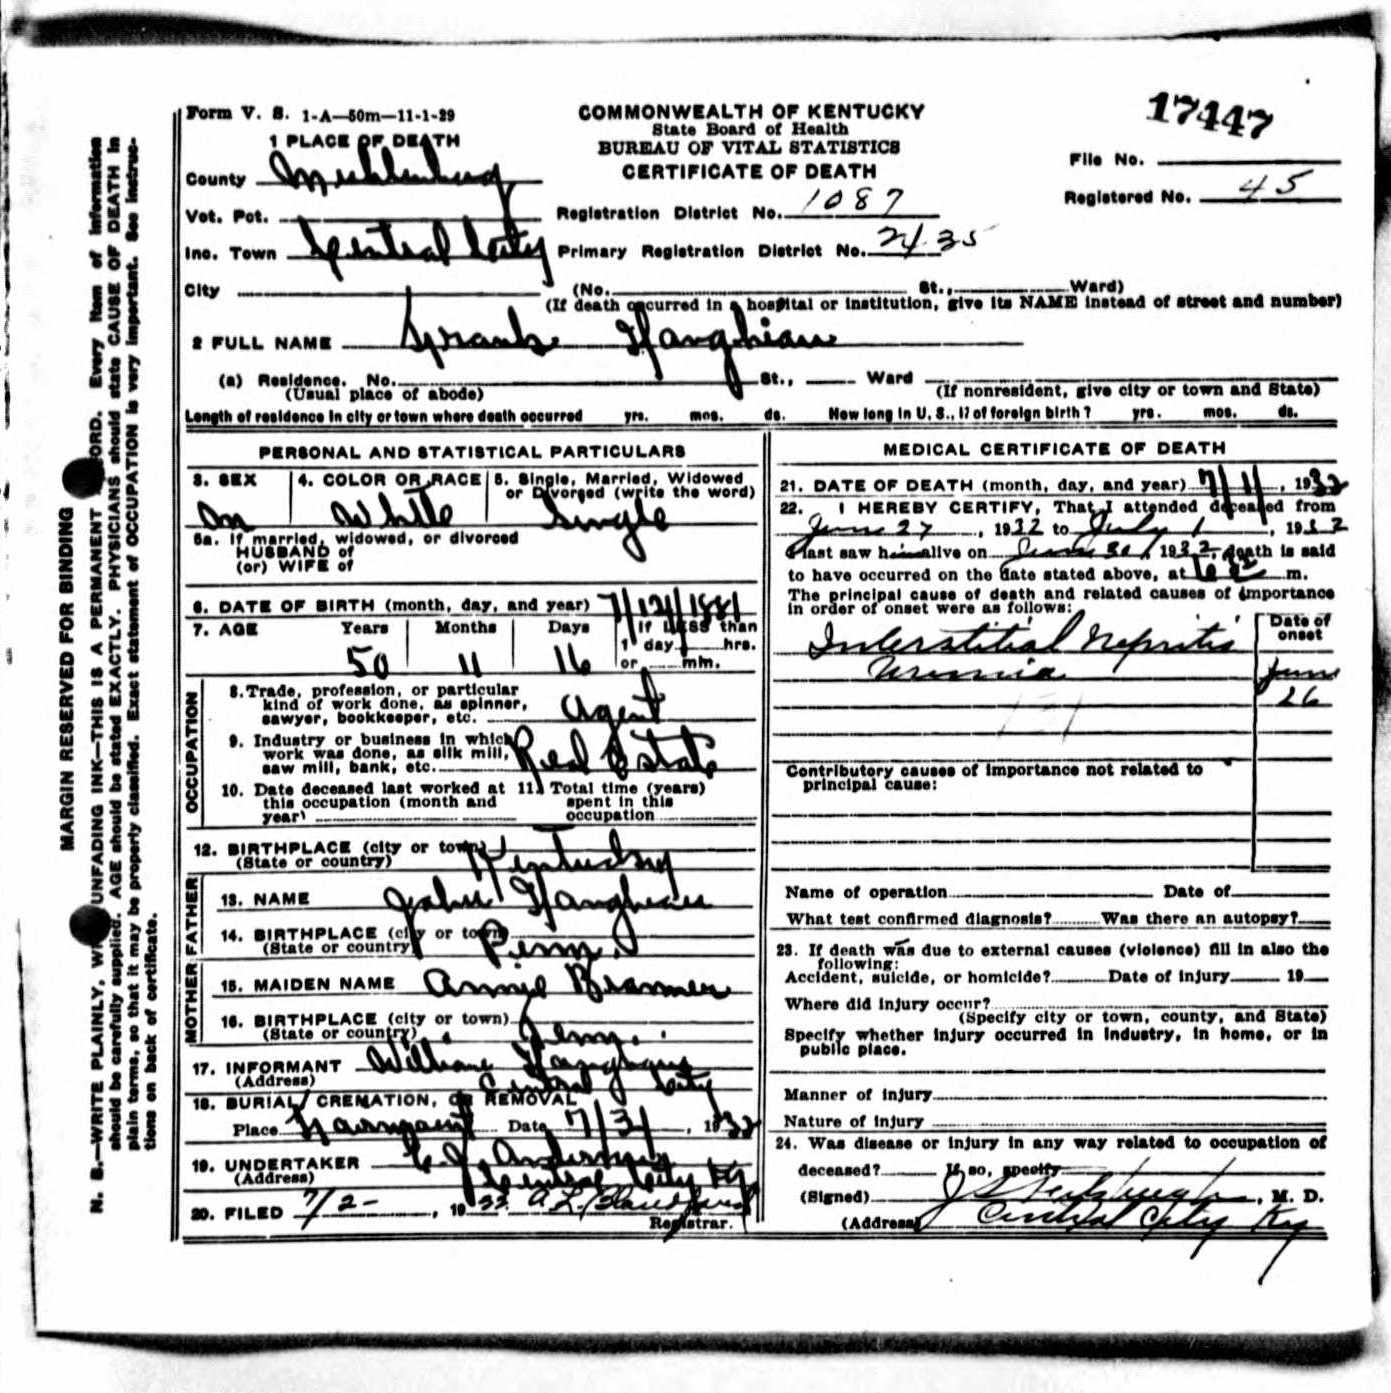 Form V. S. 1-A—50m—11-1-29
COMMONWEALTH OF KENTUCKY
State Board of Health
BUREAU OF VITAL STATISTICS
CERTIFICATE OF DEATH
17447
File No.
Registered No. 45
1 PLACE OF DEATH
County Muhlenburg
Vot. Pct.
Registration District No. 1087
Inc. Town Central City
Primary Registration District No. 2435
City (No. St., Ward)
(If death occurred in a hospital or institution, give its NAME instead of street and number)
2 FULL NAME Frank
(a) Residence. No. St., Ward
(Usual place of abode) (If nonresident, give city or town and State)
Length of residence in city or town where death occurred yrs. mos. ds. How long in U. S., if of foreign birth? yrs. mos. ds.
PERSONAL AND STATISTICAL PARTICULARS
3. SEX 4. COLOR OR RACE 5. Single, Married, Widowed
or Divorced (write the word)
M White Single
5a. If married, widowed, or divorced
HUSBAND of
(or) WIFE of
6. DATE OF BIRTH (month, day, and year) 7/12/1881
7. AGE Years Months Days If LESS than
1 day, hrs.
50 11 16 or min.
OCCUPATION
8. Trade, profession, or particular
kind of work done, as spinner,
sawyer, bookkeeper, etc. Agent
9. Industry or business in which
work was done, as silk mill,
saw mill, bank, etc. Real Estate
10. Date deceased last worked at 11. Total time (years)
this occupation (month and spent in this
year) occupation
12. BIRTHPLACE (city or town) Kentucky
(State or country)
FATHER
13. NAME John
14. BIRTHPLACE (city or town) Penn.
(State or country)
MOTHER
15. MAIDEN NAME Annie
16. BIRTHPLACE (city or town) Penn.
(State or country)
17. INFORMANT William
(Address) Central City
18. BURIAL, CREMATION, OR REMOVAL
Place Date 7/3/, 1932
19. UNDERTAKER
(Address) Central City Ky
20. FILED 7/2-, 1932 A. L.
Registrar.
MEDICAL CERTIFICATE OF DEATH
21. DATE OF DEATH (month, day, and year) 7/1/, 1932
22. I HEREBY CERTIFY, That I attended deceased from
June 27, 1932 to July 1, 1932
I last saw him alive on June 30, 1932, death is said
to have occurred on the date stated above, at m.
The principal cause of death and related causes of importance
in order of onset were as follows:
Date of
onset
Interstitial Nepritis
Uremia June
26
Contributory causes of importance not related to
principal cause:
Name of operation Date of
What test confirmed diagnosis? Was there an autopsy?
23. If death was due to external causes (violence) fill in also the
following:
Accident, suicide, or homicide? Date of injury 19
Where did injury occur?
(Specify city or town, county, and State)
Specify whether injury occurred in industry, in home, or in
public place.
Manner of injury
Nature of injury
24. Was disease or injury in any way related to occupation of
deceased? If so, specify
(Signed) , M. D.
(Address) Central City Ky
MARGIN RESERVED FOR BINDING
N. B.—WRITE PLAINLY, UNFADING INK—THIS IS A PERMANENT Every item of information
should be carefully supplied. AGE should be stated EXACTLY. PHYSICIANS should state CAUSE OF DEATH in
plain terms, so that it may be properly classified. Exact statement of OCCUPATION is very important. See instruc-
tions on back of certificate.